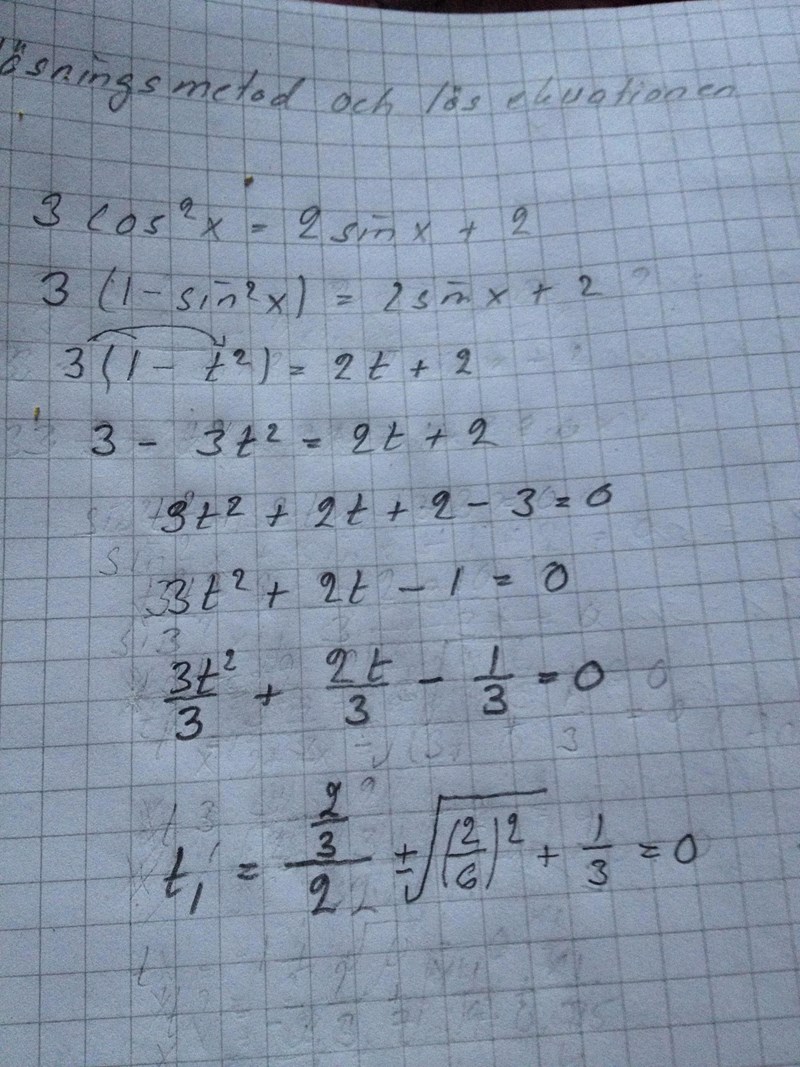 lösningsmetod och lös ekvationen
3 cos²x = 2 sin x + 2
3 (1 - sin²x) = 2 sin x + 2
3(1 - t²) = 2t + 2
3 - 3t² = 2t + 2
3t² + 2t + 2 - 3 = 0
3t² + 2t - 1 = 0
3t²/3 + 2t/3 - 1/3 = 0
t₁ = (2/3)/2 ± √(2/6)² + 1/3 = 0